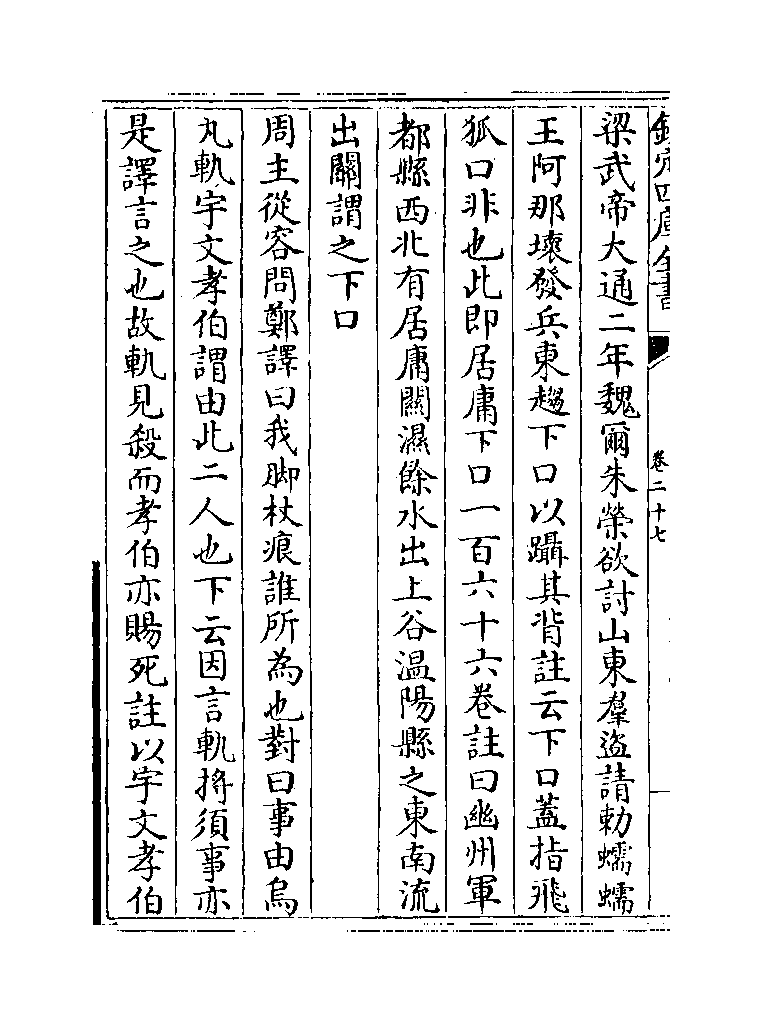 欽定四庫全書
卷二十七
梁武帝大通二年魏爾朱榮欲討山東羣盜請勅蠕蠕
王阿那壞發兵東趨下口以躡其背註云下口蓋指飛
狐口非也此即居庸下口一百六十六卷註曰幽州軍
都縣西北有居庸關濕餘水出上谷温陽縣之東南流
出關謂之下口
周主從容問鄭譯曰我脚杖痕誰所為也對曰事由烏
丸軌宇文孝伯謂由此二人也下云因言軌捋須事亦
是譯言之也故軌見殺而孝伯亦賜死註以宇文孝伯